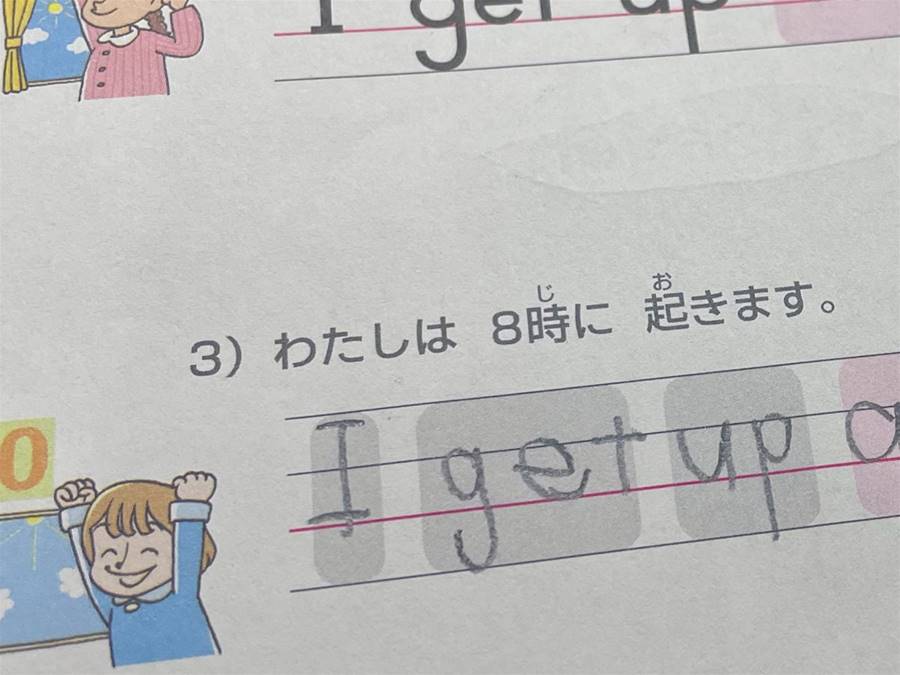 I get up
3) わたしは 8時に 起きます。
じ お
0
I get up a